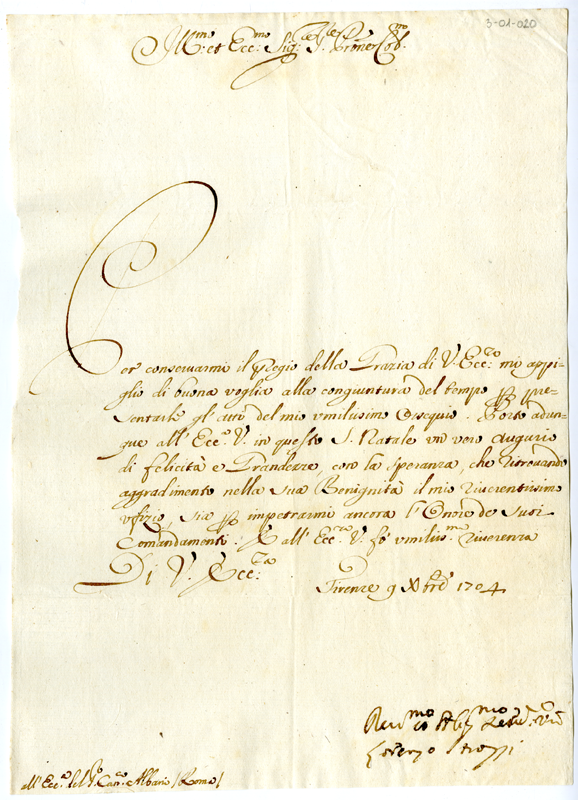 3-01-020
Ill.mo et Ecc.mo Sig.
Per conservarmi il Pregio della Grazia di V. Ecc.za mi appi-
glio di buona voglia alla congiuntura del tempo p pre-
sentarle gl'atti del mio umilissimo Ossequio. Porto adun-
que all'Ecc.a V. in questo S. Natale un vero Augurio
di felicità e Grandezze, con la speranza, che ritrovando
aggradimento nella sua Benignità il mio riverentissimo
ufizio, sia p impetrarmi ancora l'Onore de suoi
Comandamenti. E all'Ecc.za V. fò umiliss.ma riverenza
Di V. Ecc.za
Firenze 9 Xbre 1704
Lorenzo Strozzi
all'Ecc.o del S. Albani (Roma)